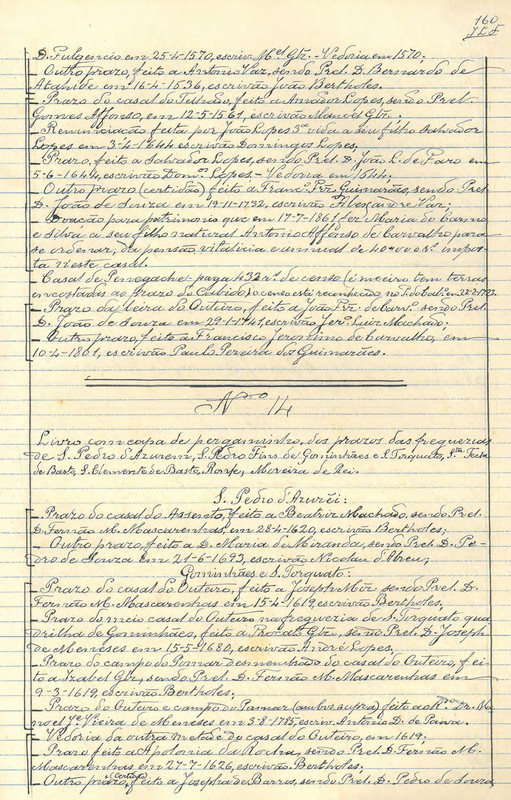 160
D. Fulgencio em 25-4-1570, escriv. Mel Glz. - Vedoria em 1570;
- Outro prazo, feito a Antonio Vaz, sendo Prel. D. Bernardo de
Ataíde em 16-4-1536, escrivão João Bertholes.
- Prazo do casal do Telhado, feito a Amador Lopes, sendo Prel.
Gomes Affonso, em 12-5-1561, escrivão Manoel Glz;
- Renunciação feita por João Lopes 3ª vida a seu filho Salvador
Lopes em 3-4-1644 escrivão Domingos Lopes;
- Prazo, feito a Salvador Lopes, sendo Prel. D. João L. de Faro em
5-6-1644, escrivão Domos Lopes. - Vedoria em 1544;
- Outro prazo (certidão) feito a Francº Frz Guimarães, sendo Prel
D. João de Souza em 19-11-1752, escrivão Alexandre Vaz;
- Doação para patrimonio que em 17-7-1861 fez Maria do Carmo
e Silva a seu filho natural Antonio Affonso de Carvalho para
se ordenar, da pensão vitalicia e annual de 40#000 rs. impos-
ta n'este casal.
- Casal de Penagache - paga 432 rs. de censo (é meeiro tem terras
encostadas ao prazo do Cabido) o censo está reconhecido no
- Prazo da Veira do Outeiro, feito a João Frz. de Carvº. sendo Prel.
D. João de Souza em 29-1-1741, escrivão Jerº. Luiz Machado;
- Outro prazo, feito a Francisco Jeronimo de Carvalho, em
10-4-1861, escrivão Paulo Pereira dos Guimarães.
Nº 14
Livro com capa de pergaminho, dos prazos das freguezias
de S. Pedro d'Azurem, S. Pedro Fins de Gominhães e S. Torquato, Sta Tecla
de Basto, S. Clemente de Basto, Ronfe, Moreira de Rei.
S. Pedro d'Azurẽi:
- Prazo do casal do Assento, feito a Beatriz Machado, sendo Prel.
D. Fernão M. Mascarenhas, em 28-4-1620, escrivão Bertholes;
- Outro prazo, feito a D. Maria de Miranda, sendo Prel. D. Pe-
dro de Souza em 21-6-1693, escrivão Nicolau d'Abreu;
Gominhães e S. Torquato:
- Prazo do casal do Outeiro, feito a Joseph Miz sendo Prel. D.
Fernão M. Mascarenhas em 15-4-1619, escrivão Bertholes;
- Prazo do meio casal do Outeiro na freguezia de S. Torquato qua
drilha de Gominhães, feito a Glz, sendo Prel. D. Joseph
de Menéses em 15-5-1680, escrivão André Lopes;
- Prazo do campo do Pomar desmembrado do casal do Outeiro, fei-
to a Izabel Glz, sendo Prel. D. Fernão M. Mascarenhas em
9-3-1619, escrivão Bertholes;
- Prazo do Outeiro e campo do Pomar (ambos supra) feito ao Rdo Dr. Ma-
noel Vieira de Menéses em 3-8-1715, escriv. Antonio D. de Paiva.
- Vedoria da outra metade do casal do Outeiro, em 1619;
- Prazo feito a Apolonia da Rocha, sendo Prel. D. Fernão M.
Mascarenhas em 27-7-1626, escrivão Bertholes;
- Outro prazo (certidão), feito a Josepha de Barros, sendo Prel. D. Pedro de Souza